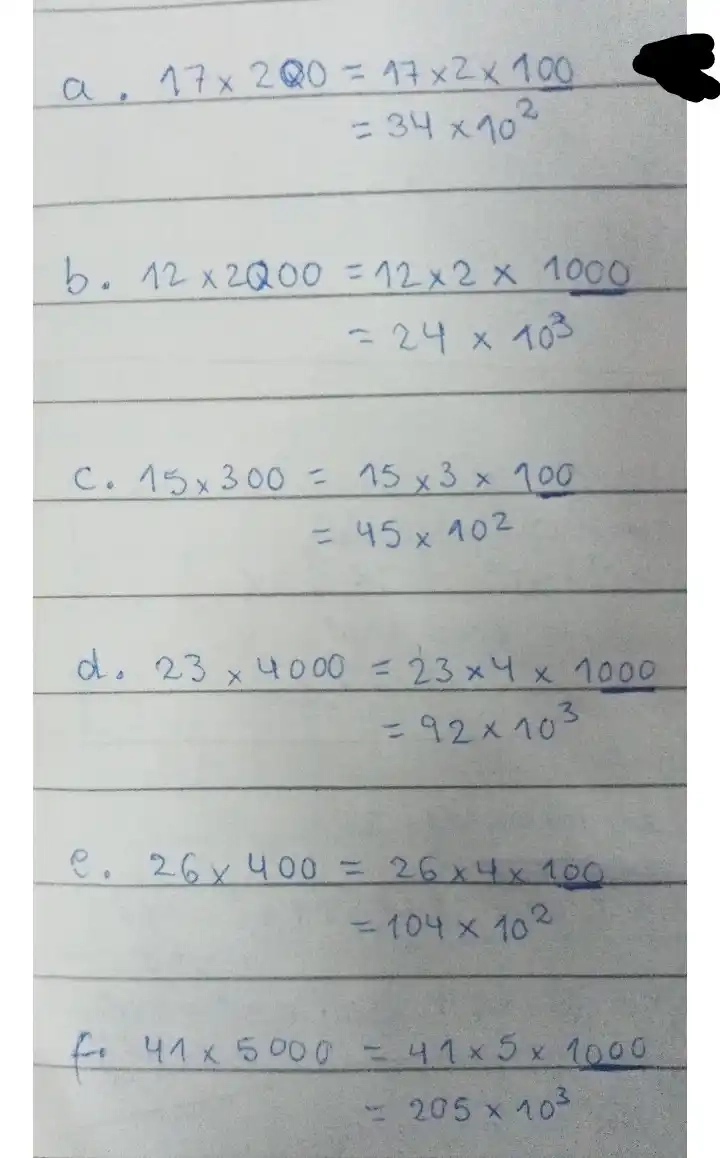 a. 17 x 200 = 17 x 2 x 100
= 34 x 10²
b. 12 x 2000 = 12 x 2 x 1000
= 24 x 10³
c. 15 x 300 = 15 x 3 x 100
= 45 x 10²
d. 23 x 4000 = 23 x 4 x 1000
= 92 x 10³
e. 26 x 400 = 26 x 4 x 100
= 104 x 10²
f. 41 x 5000 = 41 x 5 x 1000
= 205 x 10³